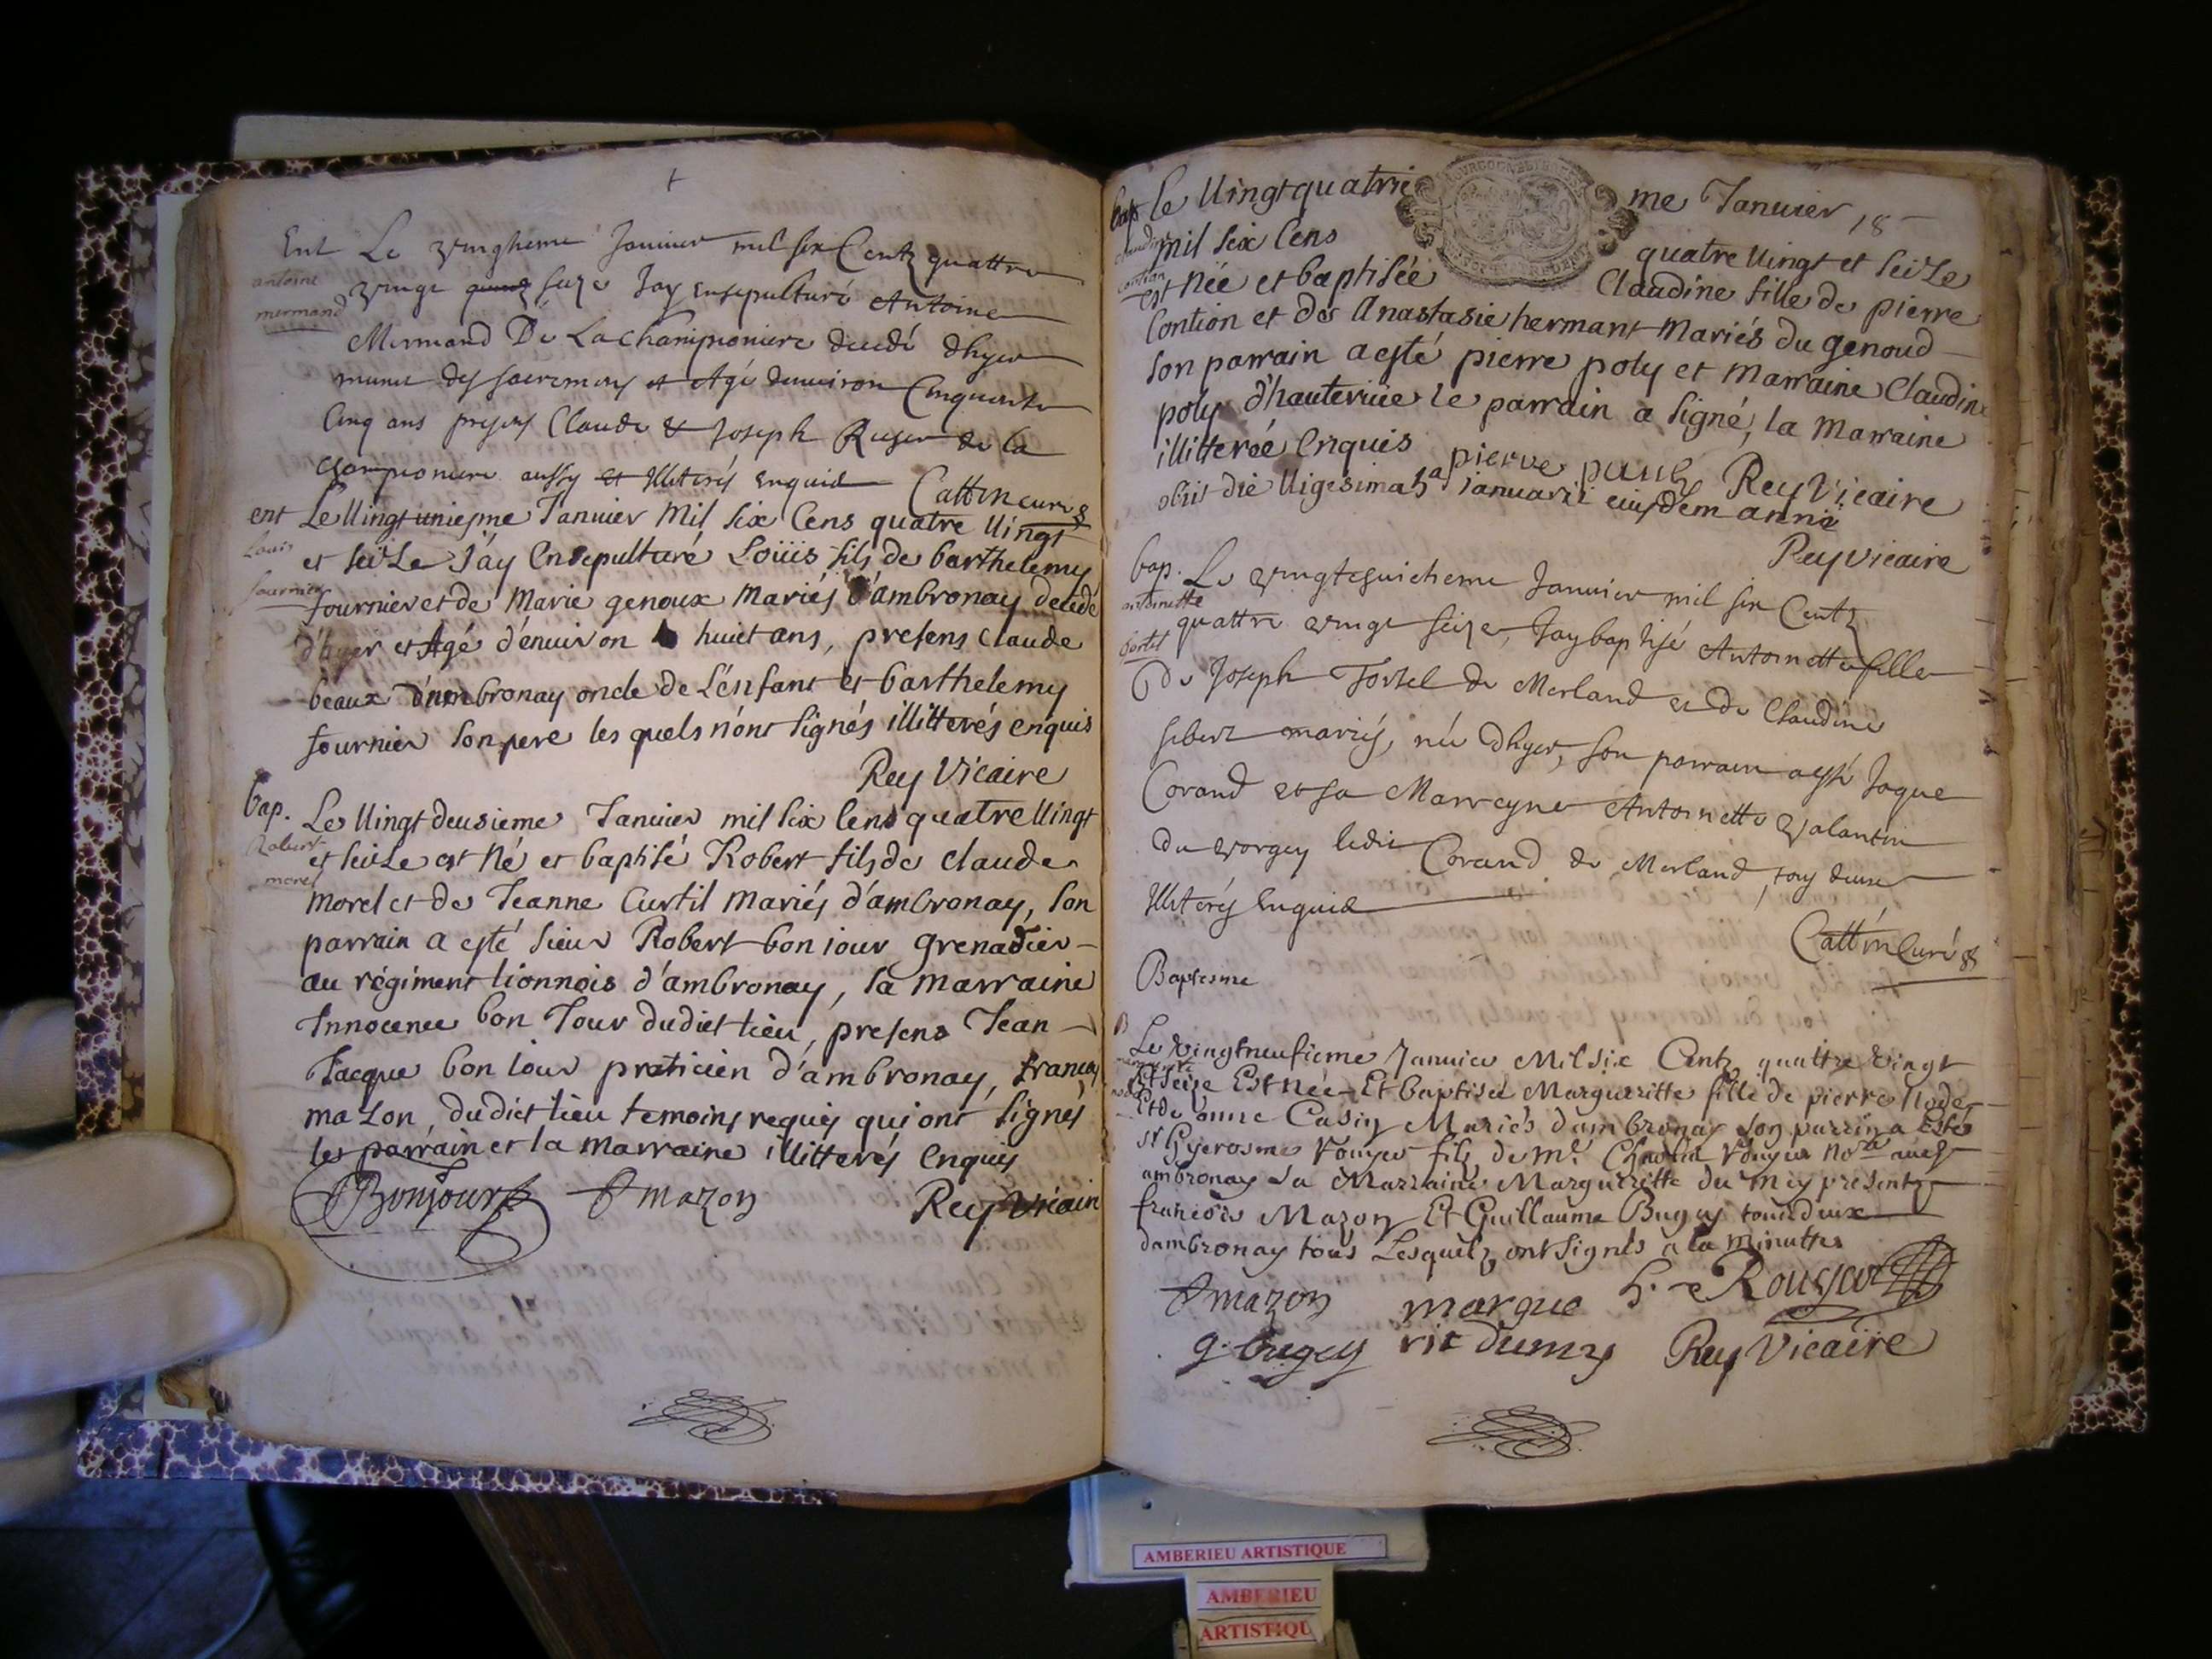 Ent Le vingtieme Janvier mil six Centz quattre
antoine
mermand
vingt seize Jay ensepulturé Antoine
Mermand De La championiere decedé dhyer
munit des sacremens et Agé denuiron Cinquante
Cinq ans presens Claude & Joseph Ruger de la
championiere aussy et Illiterés enquis Cattin curé
ent Le Uingt uniesme Januier Mil six Cens quatre Uingt
Louis
fournier
et seize J'ay Ensepulturé Loüis fils de barthelemy
fournier et de Marie genoux Mariés d'ambronay decedé
d'hyer et Agé d'enuiron huict ans, presens claude
beaux d'ambronay oncle de L'enfant et barthelemy
fournier son pere les quels n'ont signés illitterés enquis
Rey Vicaire
bap. Le Uingt deusieme Januier mil six cens quatre Uingt
Robert
morel
et seize est Né et baptisé Robert fils de claude
morel et de Jeanne Curtil Mariés d'ambronay, son
parrain a esté sieur Robert bon iour grenadier
au régiment lionnois d'ambronay, la marraine
Innocence bon Jour dudict lieu, presens Jean
Jacque bon iour praticien d'ambronay, françois
mazon, dudict lieu temoins requis qui ont signés
les parrain et la marraine illitterés enquis
Bonjour Fmazon Rey Vicair
bap Le Uingt quatrie me Januier 18
claudine
contion
mil six Cens quatre Uingt et seize
est Née et baptisée Claudine fille de pierre
Contion et de Anastasie hermant Mariés du genoud
son parrain a esté pierre poly et Marraine Claudine
poly d'hauteriue le parrain a signé, la Marraine
illitterée enquis pierre Rey Vicaire
obiit die Uigesima 5a ianuarii eiusdem anni
Rey vicaire
bap. Le vingtehuictieme Janvier mil six Centz
antoinette
quattre vingt seize, Jay baptisé Antoinette fille
de Joseph de Merland et de Claudine
mariés, née dhyer, son parrain a esté Jaque
Corand et sa Marreyne Antoinette Valantin
du vorgey ledit Corand de Merland, tous deux
Illiterés Enquis
Cattin Curé
Baptesme
Le Vingtneufieme Januier Mil Six Centz quattre Vingt
Et Seize Est Née Et Baptisée Margueritte fille de pierre
Et de anne Casin Mariés dambronay son parrin a Esté
sr Hyerosme Rouyer fils de Mr. Rouyer
ambronay La Marraine Margueritte du mey presentz
francois Mazon Et Guillaume Bugey tous deux
dambronay tous Lesquelz ont Signés a la Minutte
Fmazon margue h. Rouyer
g. bugey rit dumey Rey Vicaire
AMBERIEU ARTISTIQUE
AMBERIEU
ARTISTIQU